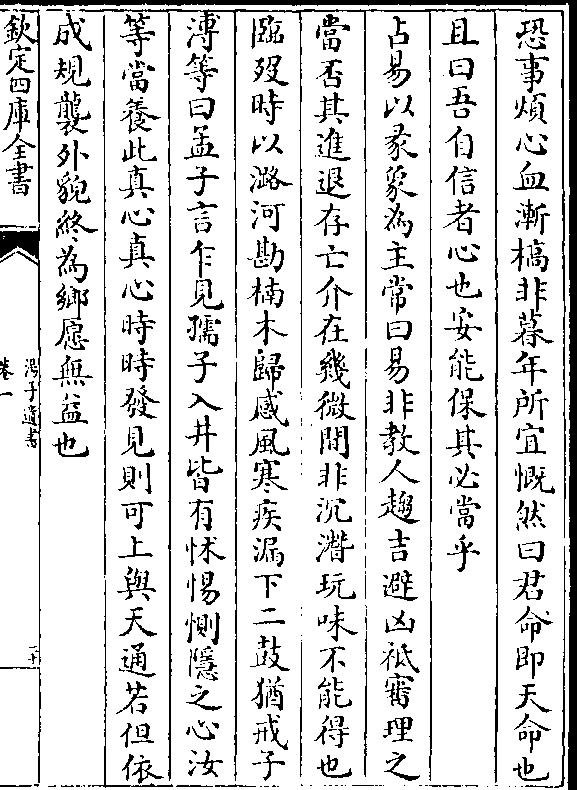 恐事煩心血漸槁非暮年所宜慨然曰君命即天命也
且曰吾自信者心也安能保其必當乎
占易以彖象為主常曰易非教人趨吉避凶祗審理之
當否其進退存亡介在幾微間非沉潛玩味不能得也
臨歿時以潞河勘楠木歸感風寒疾漏下二鼓猶戒子
溥等曰孟子言乍見孺子入井皆有怵惕惻隱之心汝
等當養此真心真心時時發見則可上與天通若但依
成規襲外貌終為鄉愿無益也
欽定四庫全書
湯子遺書
卷一